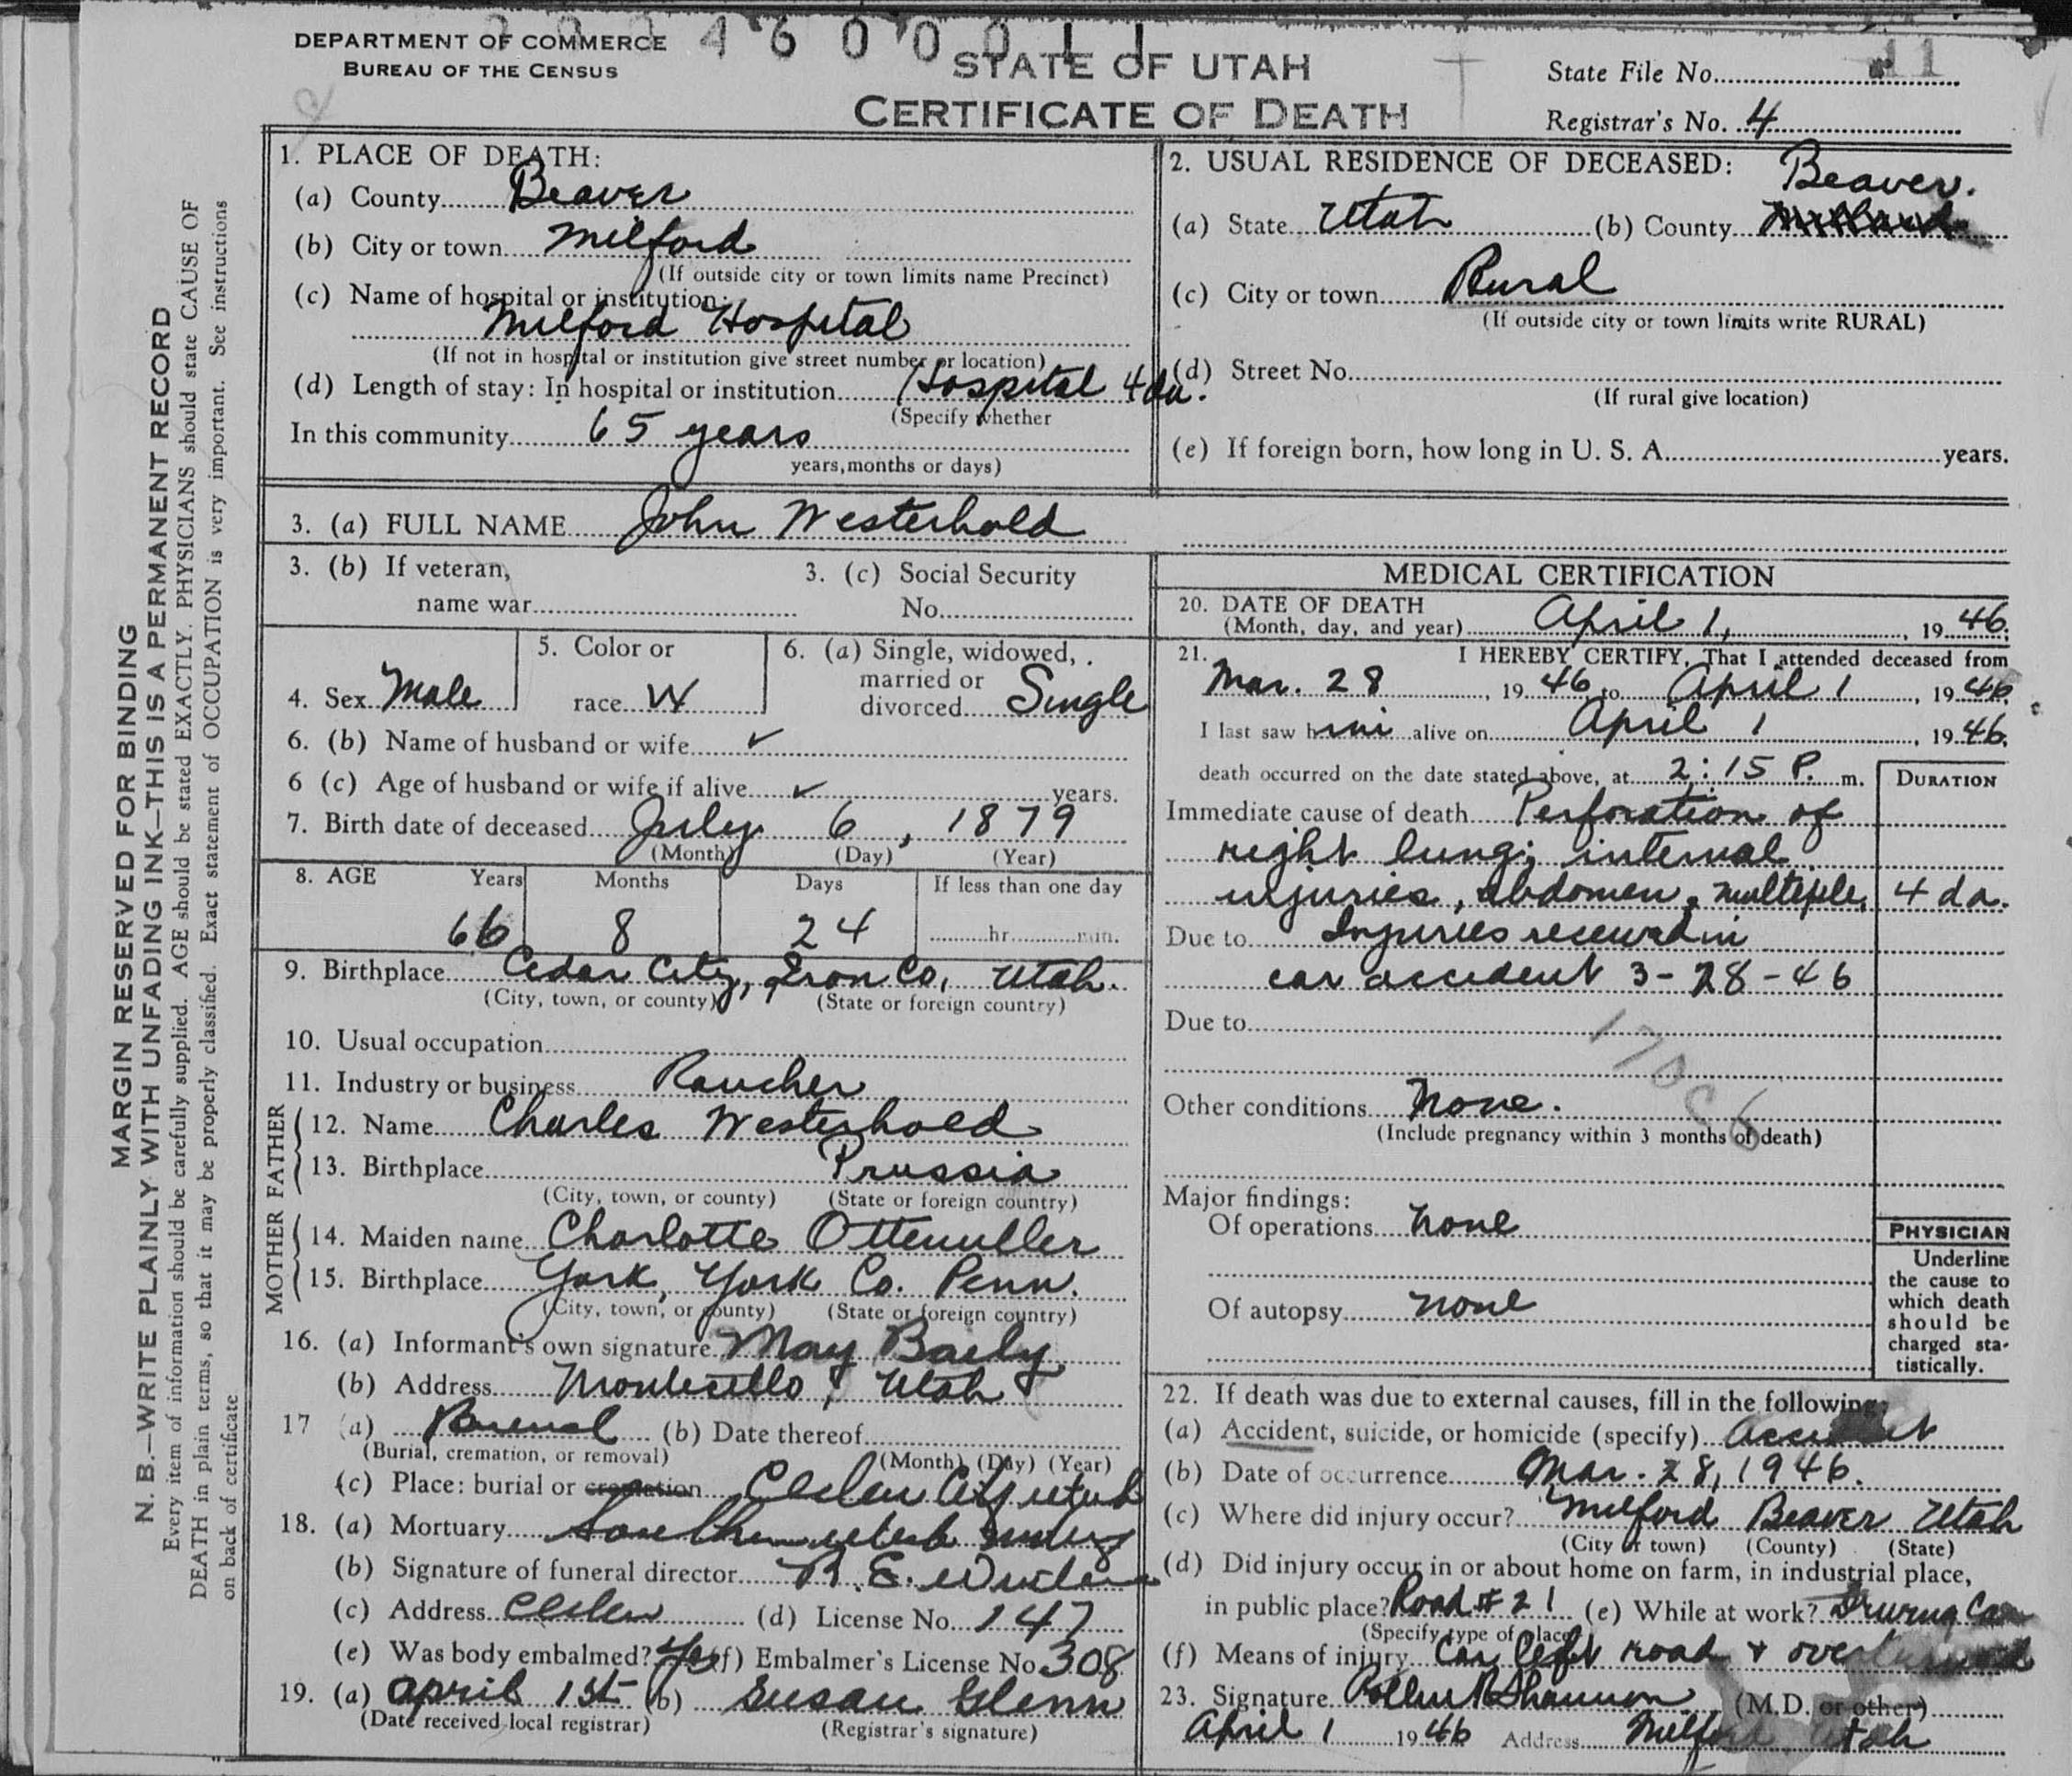 DEPARTMENT OF COMMERCE
BUREAU OF THE CENSUS
4600011
STATE OF UTAH
CERTIFICATE OF DEATH
State File No. 11
Registrar's No. 4
MARGIN RESERVED FOR BINDING
N. B.—WRITE PLAINLY WITH UNFADING INK—THIS IS A PERMANENT RECORD
Every item of information should be carefully supplied. AGE should be stated EXACTLY. PHYSICIANS should state CAUSE OF
DEATH in plain terms, so that it may be properly classified. Exact statement of OCCUPATION is very important. See instructions
on back of certificate
1. PLACE OF DEATH:
(a) County Beaver
(b) City or town Milford
(If outside city or town limits name Precinct)
(c) Name of hospital or institution:
Milford Hospital
(If not in hospital or institution give street number or location)
(d) Length of stay: In hospital or institution Hospital 4 da.
(Specify whether
In this community 65 years
years, months or days)
2. USUAL RESIDENCE OF DECEASED:
Beaver.
(a) State Utah (b) County Millard
(c) City or town Rural
(If outside city or town limits write RURAL)
(d) Street No.
(If rural give location)
(e) If foreign born, how long in U. S. A. years.
3. (a) FULL NAME John Westerhold
3. (b) If veteran,
name war
3. (c) Social Security
No.
4. Sex Male
5. Color or
race W
6. (a) Single, widowed,
married or
divorced Single
6. (b) Name of husband or wife ✓
6 (c) Age of husband or wife if alive ✓ years.
7. Birth date of deceased July 6, 1879
(Month) (Day) (Year)
8. AGE Years Months Days If less than one day
66 8 24 hr. min.
9. Birthplace Cedar City, Iron Co, Utah.
(City, town, or county) (State or foreign country)
10. Usual occupation
11. Industry or business Rancher
FATHER
12. Name Charles Westerhold
13. Birthplace Prussia
(City, town, or county) (State or foreign country)
MOTHER
14. Maiden name Charlotte Ottenuller
15. Birthplace York, York Co. Penn.
(City, town, or county) (State or foreign country)
16. (a) Informant's own signature May Baily
(b) Address Monticello, Utah
17 (a) Burial (b) Date thereof
(Burial, cremation, or removal) (Month) (Day) (Year)
(c) Place: burial or cremation Cedar City Utah
18. (a) Mortuary Southern Utah
(b) Signature of funeral director R. E.
(c) Address Cedar (d) License No. 147
(e) Was body embalmed? Yes (f) Embalmer's License No. 308
19. (a) April 1st (b) Susan Glenn
(Date received local registrar) (Registrar's signature)
MEDICAL CERTIFICATION
20. DATE OF DEATH
(Month, day, and year) April 1, 1946.
21. I HEREBY CERTIFY, That I attended deceased from
Mar. 28, 1946 to April 1, 1946,
I last saw him alive on April 1, 1946,
death occurred on the date stated above, at 2:15 P. m.
DURATION
Immediate cause of death Perforation of
right lung; internal
injuries, abdomen, multiple, 4 da.
Due to Injuries received in
car accident 3-28-46
Due to
170c6
Other conditions None.
(Include pregnancy within 3 months of death)
Major findings:
Of operations none
Of autopsy none
PHYSICIAN
Underline
the cause to
which death
should be
charged sta-
tistically.
22. If death was due to external causes, fill in the following:
(a) Accident, suicide, or homicide (specify) Accident
(b) Date of occurrence Mar. 28, 1946.
(c) Where did injury occur? Milford Beaver Utah
(City or town) (County) (State)
(d) Did injury occur in or about home on farm, in industrial place,
in public place? Road # 21 (e) While at work? Driving Car
(Specify type of place)
(f) Means of injury Car left road & overturned
23. Signature Shannon (M.D. or other)
April 1 1946 Address Milford Utah